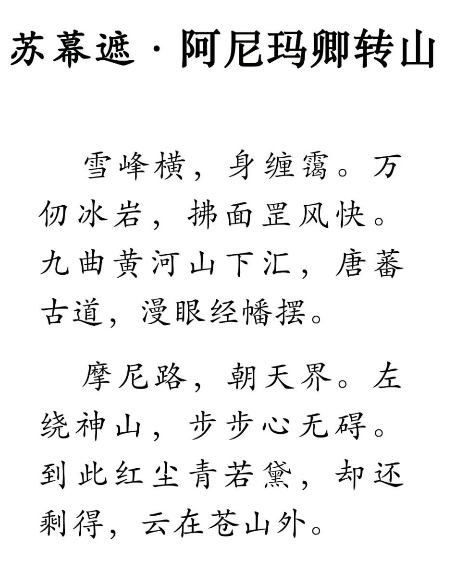 苏幕遮·阿尼玛卿转山
雪峰横，身缠霭。万
仞冰岩，拂面罡风快。
九曲黄河山下汇，唐蕃
古道，漫眼经幡摆。
摩尼路，朝天界。左
绕神山，步步心无碍。
到此红尘青若黛，却还
剩得，云在苍山外。